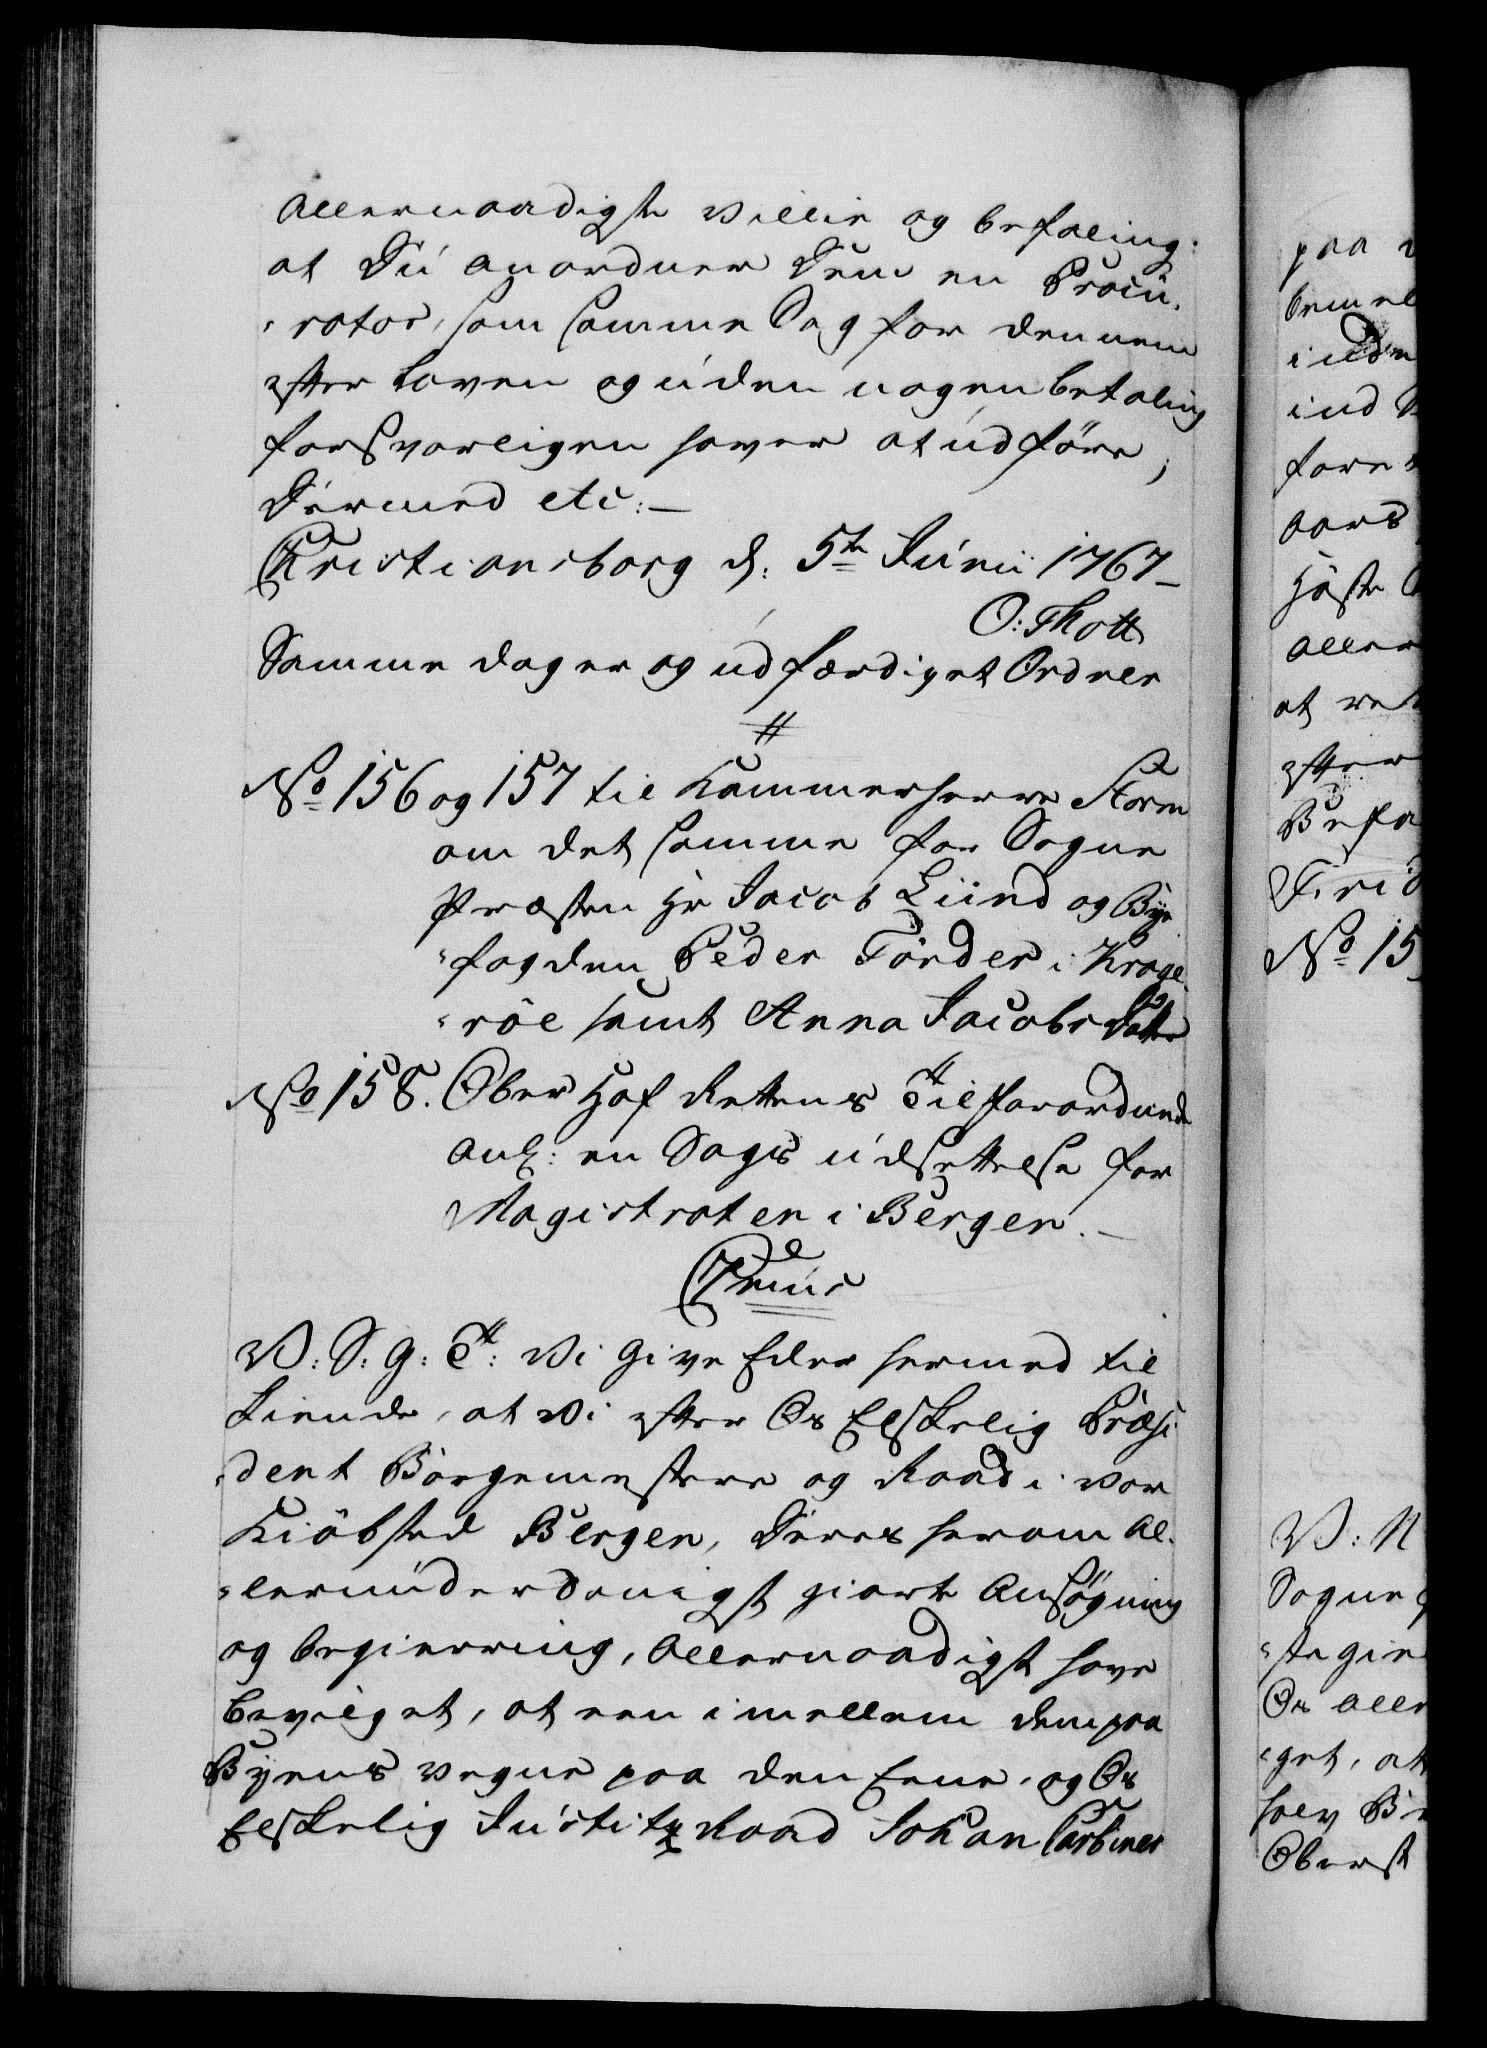 Allernaadigste Villie og befaling:
at Du anordner dem en Procu-
-rator, som samme Sag for dennem
efter Loven og uden nogen betaling
forsvarligen haver at udføre,
Dermed etc:
Christiansborg d: 5te Junii 1767
O: Thott
Samme dag er og udfærdiget Ordrer
//
No 156 og 157 til Kammerherre Storm
om det samme for Sogne
Præsten Hr Jacob Lund og Bye
-fogden Peder Tørder i Krage-
-röe samt Anna Jacobs Datter
No 158. Ober Hof Rettens Tilforordnede
anl: en Sags udsettelse for
Magistraten i Bergen.
V: S: G: T: Vi give Eder hermed til
kiende, at Vi efter Os Elskelig Præsi-
-dent Borgemestere og Raad i vor
Kiöbsted Bergen, Deres herom al-
-lerunderdanigst giorte Ansögning
og begiering, Allernaadigst have
bevilget, at een imellem dem paa
Byens vegne paa den Eene, og Os
Elskelig Justitz Raad Johan
paa
No 15
V: N
Sogne
Os aller
-get, at
Oberst